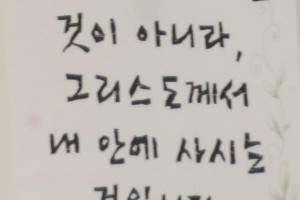 것이 아니라,
그리스도께서
내 안에 사시는
것입니다